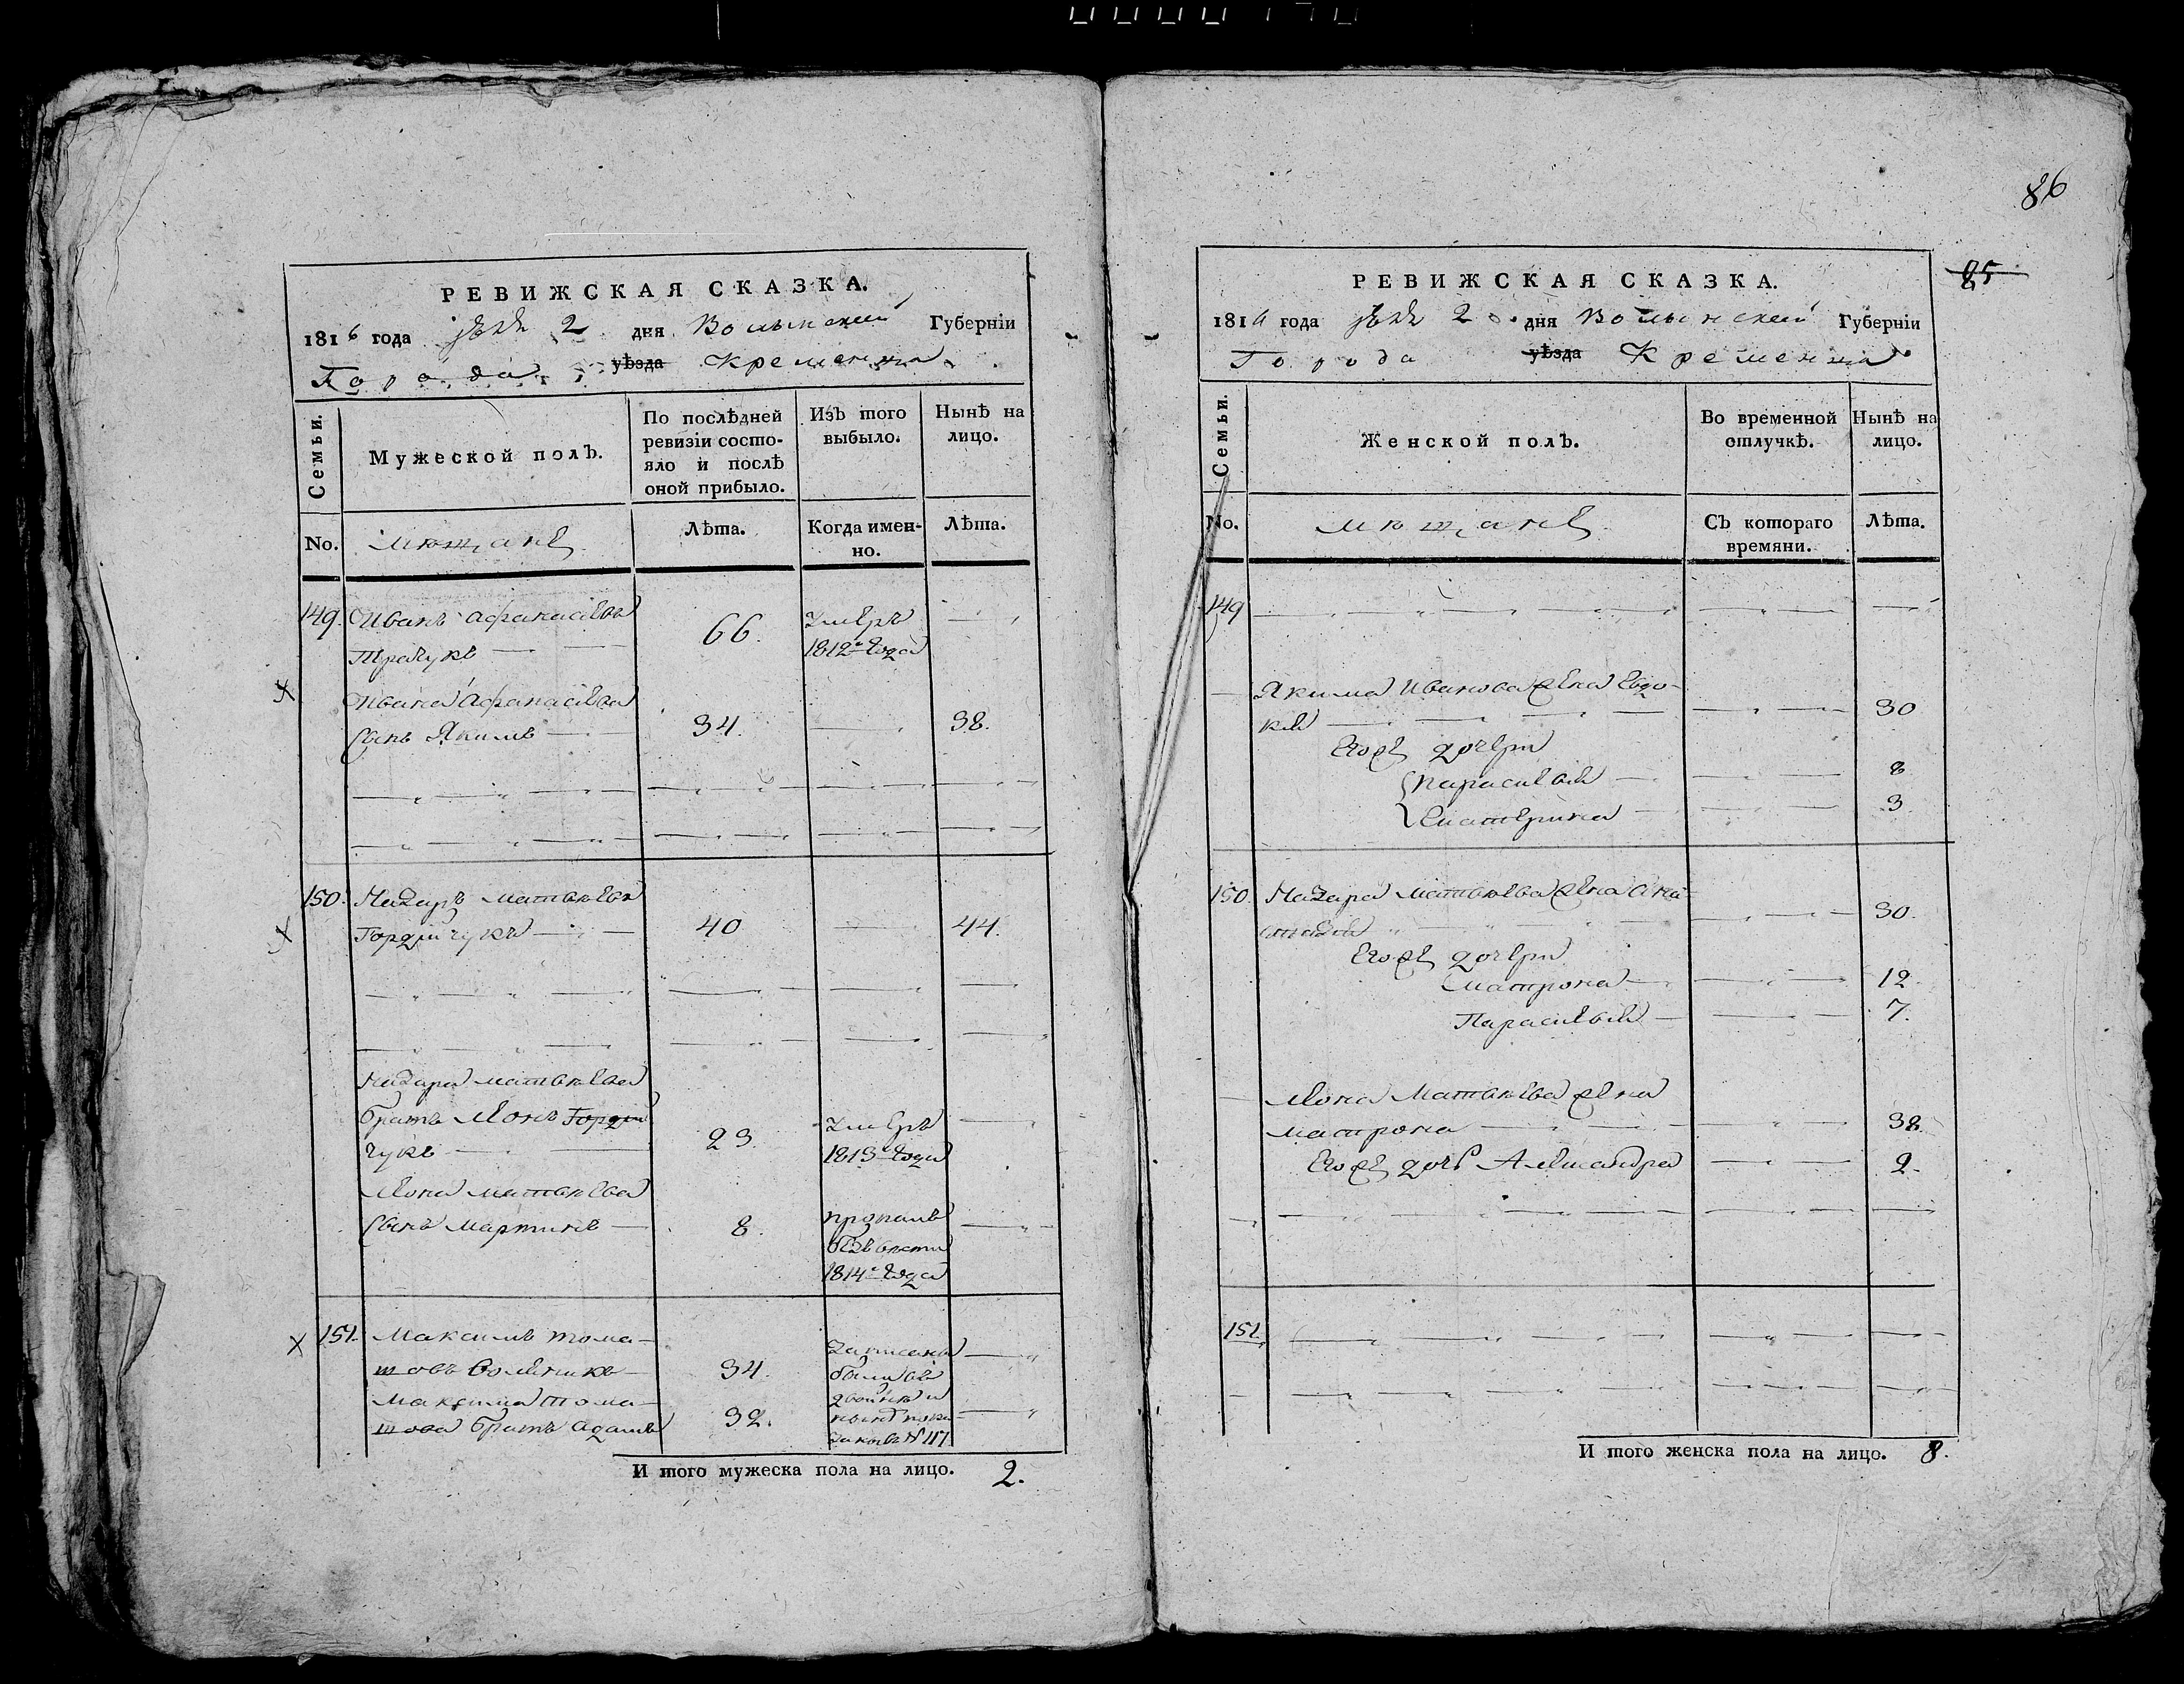 РЕВИЖСКАЯ СКАЗКА.
1816 года 2 дня Волынской Губерніи
Города уѣзда Кременца
Семьи.
Мужеской полъ.
По послѣдней ревизіи состо-
яло и послѣ
оной прибыло.
Изъ того
выбыло.
Нынѣ на
лицо.
No.
мѣщане
Лѣта.
Когда имен-
но.
Лѣта.
149. Иванъ Афанасіевъ
66.
умеръ
1812 года
Ивана Афанасіева
сынъ Якимъ
34.
38.
150. Назаръ Матвѣевъ
Гордійчукъ
40
44.
Назара Матвѣева
братъ Леонъ Гордій
чукъ
23.
умеръ
1813 года
Леона Матвѣева
сынъ Мартинъ
8.
пропалъ
безъ вѣсти
1814 года
151. Максимъ Тома-
шовъ
34.
Записаны
были въ
двойнѣ и
Максима Тома-
шова братъ Адамъ
32.
№ 117
И того мужеска пола на лицо. 2.
86
85
РЕВИЖСКАЯ СКАЗКА.
1816 года 2 дня Волынской Губерніи
Города уѣзда Кременца
Семьи.
Женской полъ.
Во временной
отлучкѣ.
Нынѣ на
лицо.
No.
мѣщане
Съ котораго
времяни.
Лѣта.
149
Якима Иванова жена Евдо-
кія
30
Егоже дочери
Параскевія
8
Екатерина
3
150. Назара Матвѣева жена Ана-
стасія
30.
Егоже дочери
Матрона
12
Параскевія
7.
Леона Матвѣева жена
Матрона
38.
Егоже дочь Александра
2.
151.
И того женска пола на лицо. 8.